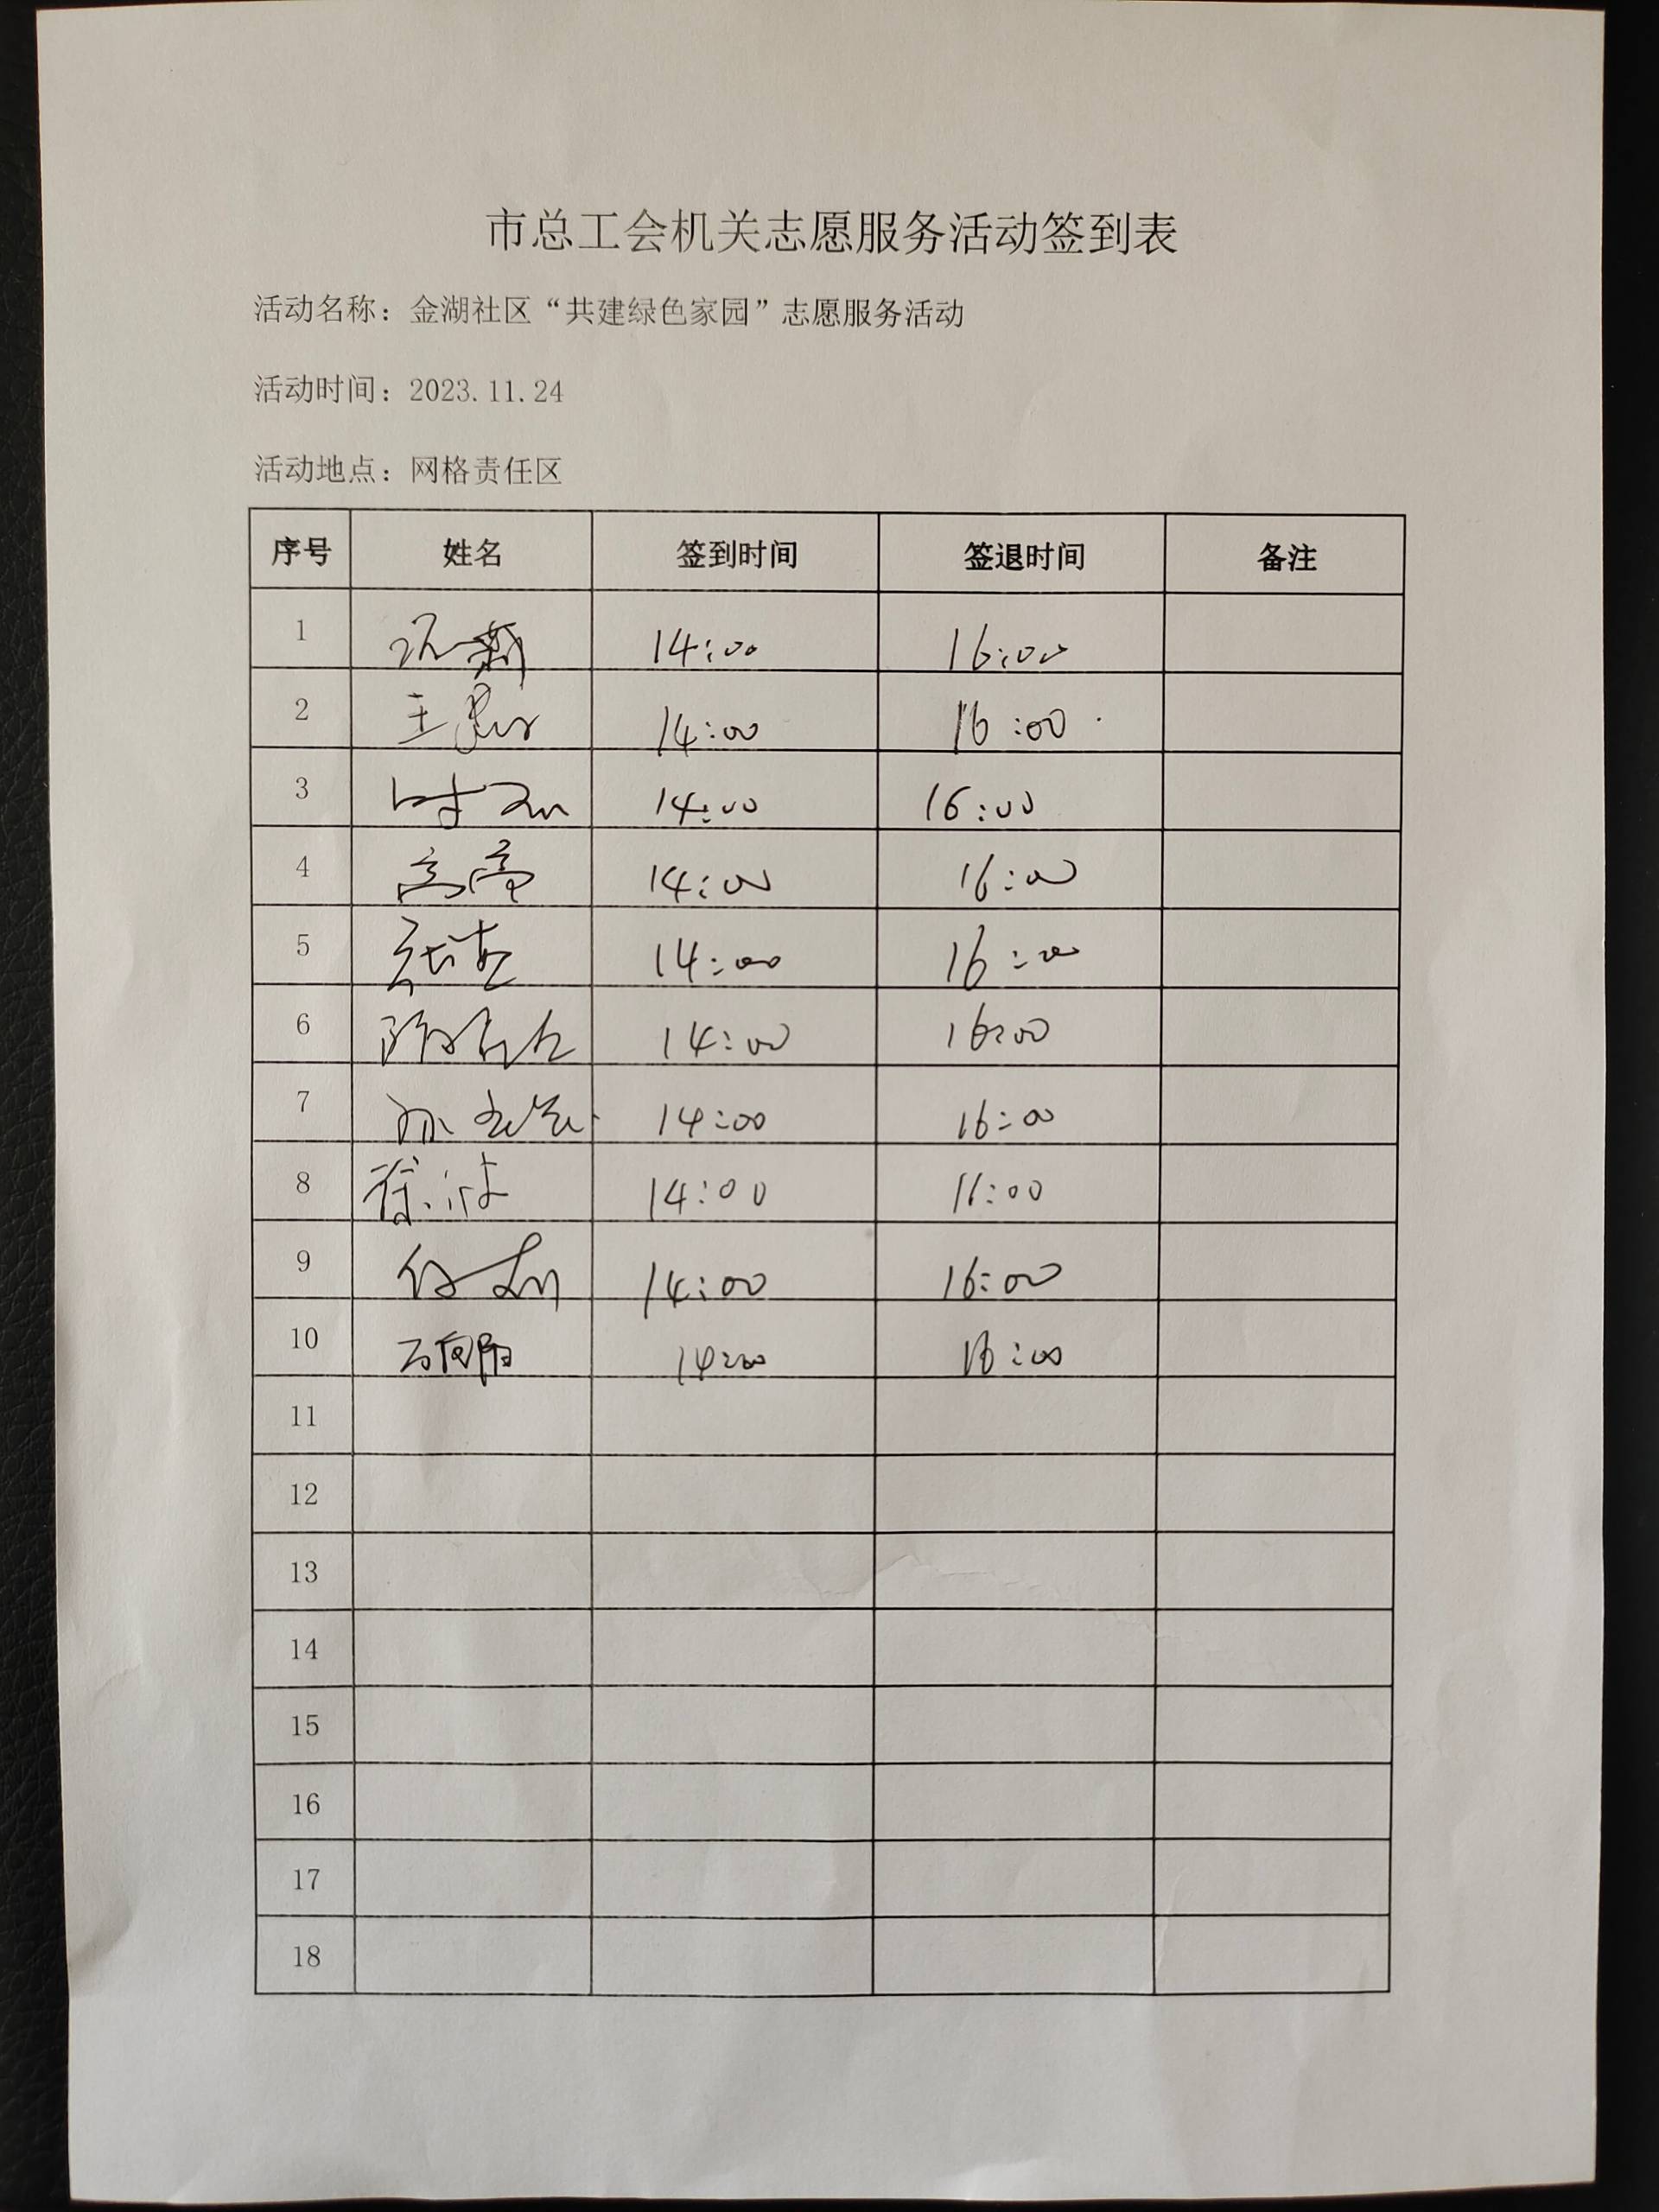 市总工会机关志愿服务活动签到表
活动名称：金湖社区“共建绿色家园”志愿服务活动
活动时间：2023.11.24
活动地点：网格责任区
序号 姓名 签到时间 签退时间 备注
1 14:00 16:00
2 14:00 16:00
3 14:00 16:00
4 高亮 14:00 16:00
5 14:00 16:00
6 14:00 16:00
7 14:00 16:00
8 徐波 14:00 16:00
9 14:00 16:00
10 万向阳 14:00 16:00
11
12
13
14
15
16
17
18